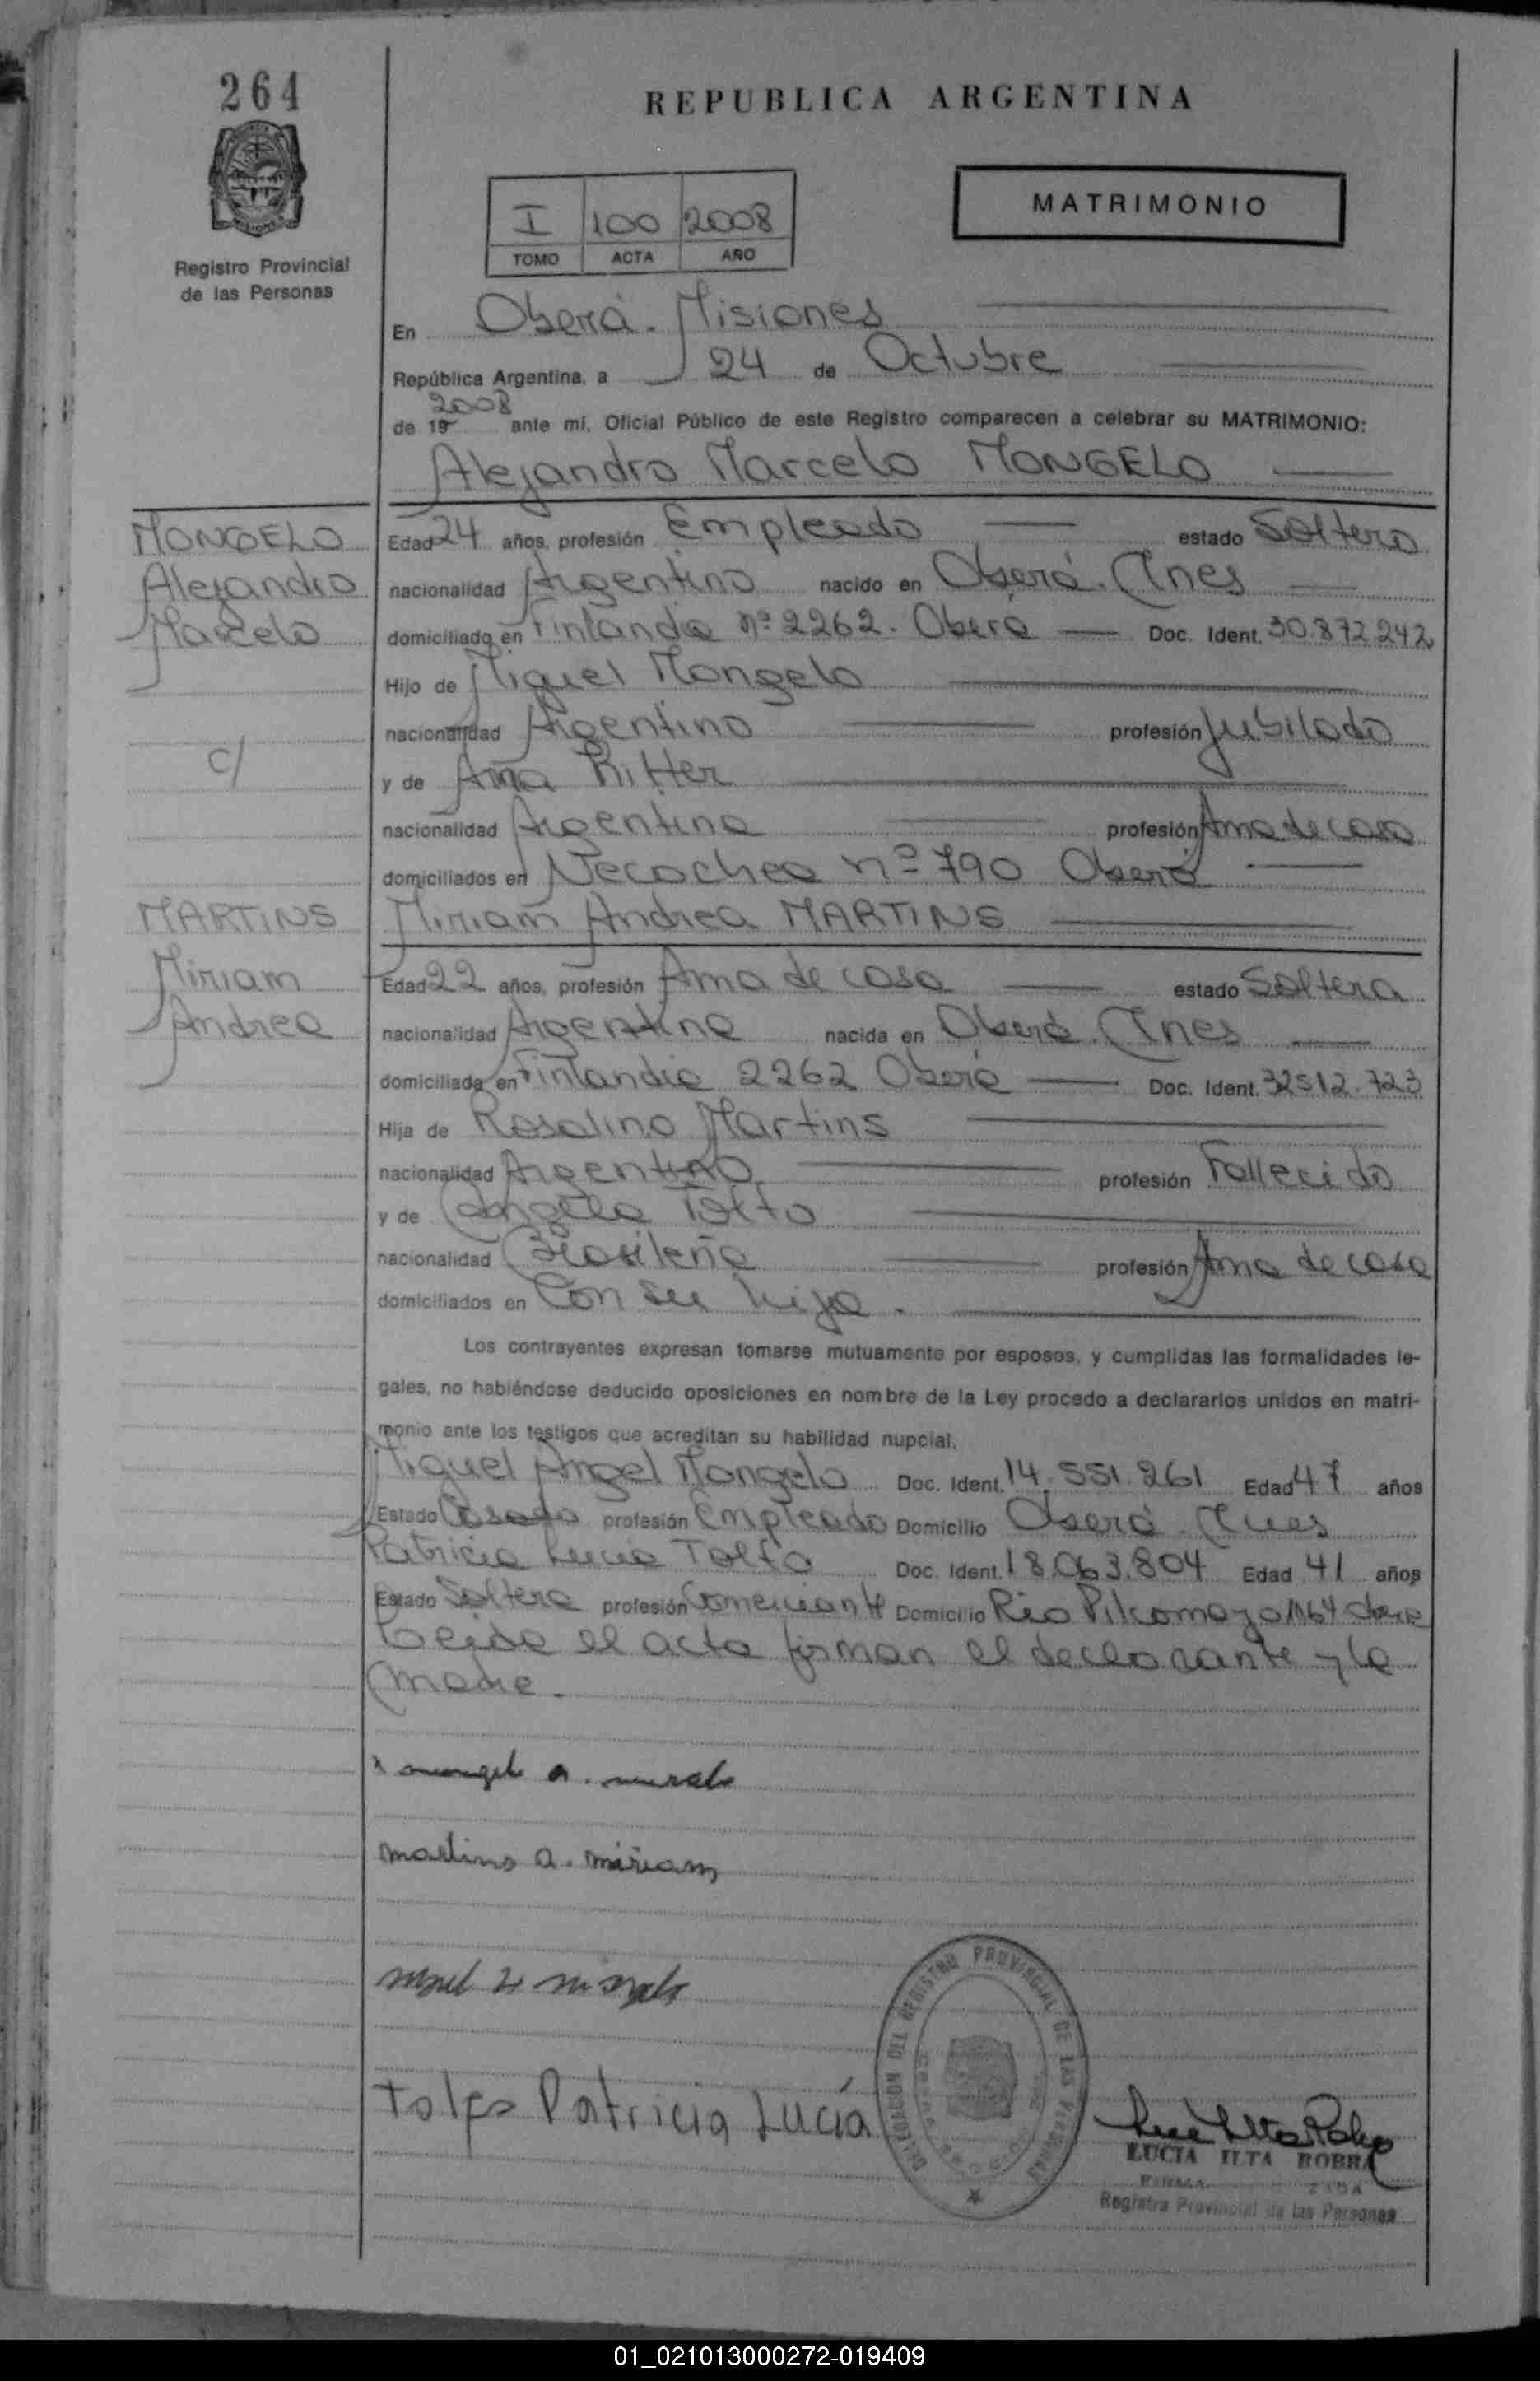 264
REPUBLICA ARGENTINA
MATRIMONIO
I 100 2008
TOMO ACTA AÑO
Registro Provincial
de las Personas
En Oberá. Misiones
República Argentina, a 24 de Octubre
2008
de 19 ante mí, Oficial Público de este Registro comparecen a celebrar su MATRIMONIO:
Alejandro Marcelo MONGELO
MONGELO
Alejandro
Marcelo
c/
MARTINS
Miriam
Andrea
Edad 24 años, profesión Empleado estado Soltero
nacionalidad Argentino nacido en Oberá. Mnes
domiciliado en Finlandia Nº 2262. Oberá Doc. Ident. 30.872.242
Hijo de Miguel Mongelo
nacionalidad Argentino profesión Jubilado
y de Ana Ritter
nacionalidad Argentina profesión Ama de casa
domiciliados en Necochea nº 790 Oberá
Miriam Andrea MARTINS
Edad 22 años, profesión Ama de casa estado Soltera
nacionalidad Argentina nacida en Oberá. Mnes
domiciliada en Finlandia 2262 Oberá Doc. Ident. 32512.723
Hija de Rosalino Martins
nacionalidad Argentino profesión Fallecido
y de Angela
nacionalidad Brasileña profesión Ama de casa
domiciliados en Con su hija.
Los contrayentes expresan tomarse mutuamente por esposos, y cumplidas las formalidades le-
gales, no habiéndose deducido oposiciones en nombre de la Ley procedo a declararlos unidos en matri-
monio ante los testigos que acreditan su habilidad nupcial.
Miguel Angel Mongelo Doc. Ident. 14.551.261 Edad 47 años
Estado Casado profesión Empleado Domicilio Oberá. Mnes
Patricia Lucia Tolfo Doc. Ident. 18.063.804 Edad 41 años
Estado Soltera profesión Comerciante Domicilio Rio Pilcomayo 1164
Leida el acta firman el declarante y la
madre.
martins a. miriam
Tolfo Patricia Lucía
DELEGACION DEL REGISTRO PROVINCIAL DE LAS PERSONAS
LUCIA ILTA ROBRA
Registro Provincial de las Personas
01_021013000272-019409